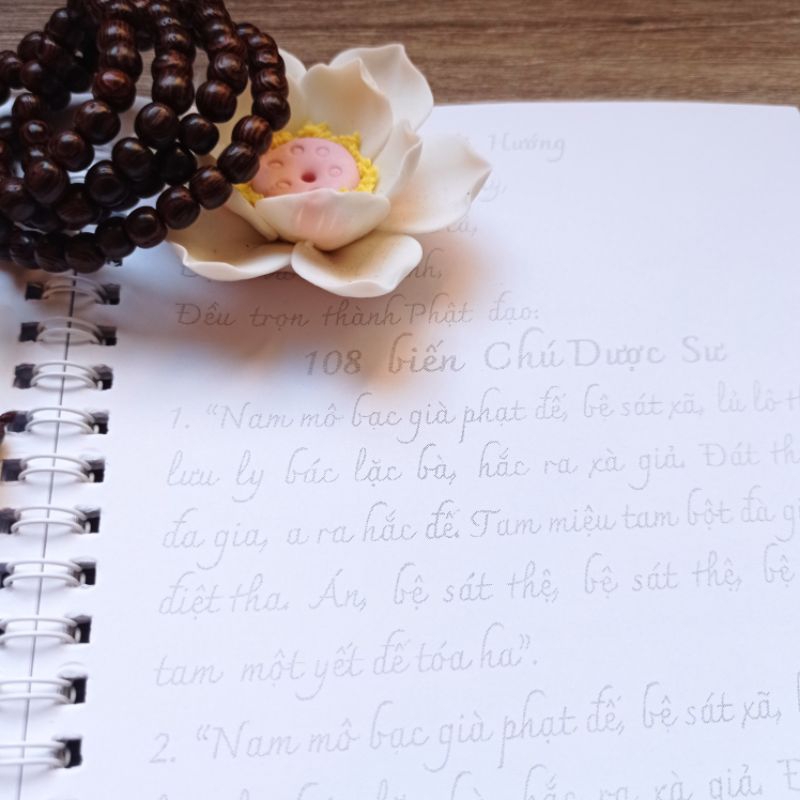 Hướng
Đều trọn thành Phật đạo:
108 biến Chú Dược Sư
1. “Nam mô bạc già phạt đế, bệ sát xã, lủ lô
lưu ly bác lặc bà, hắc ra xà giả. Đát
đa gia, a ra hắc đế. Tam miệu tam bột đà
điệt tha. Án, bệ sát thệ, bệ sát thệ, bệ
tam một yết đế tóa ha”.
2. “Nam mô bạc già phạt đế, bệ sát xã,
hắc ra xà giả.